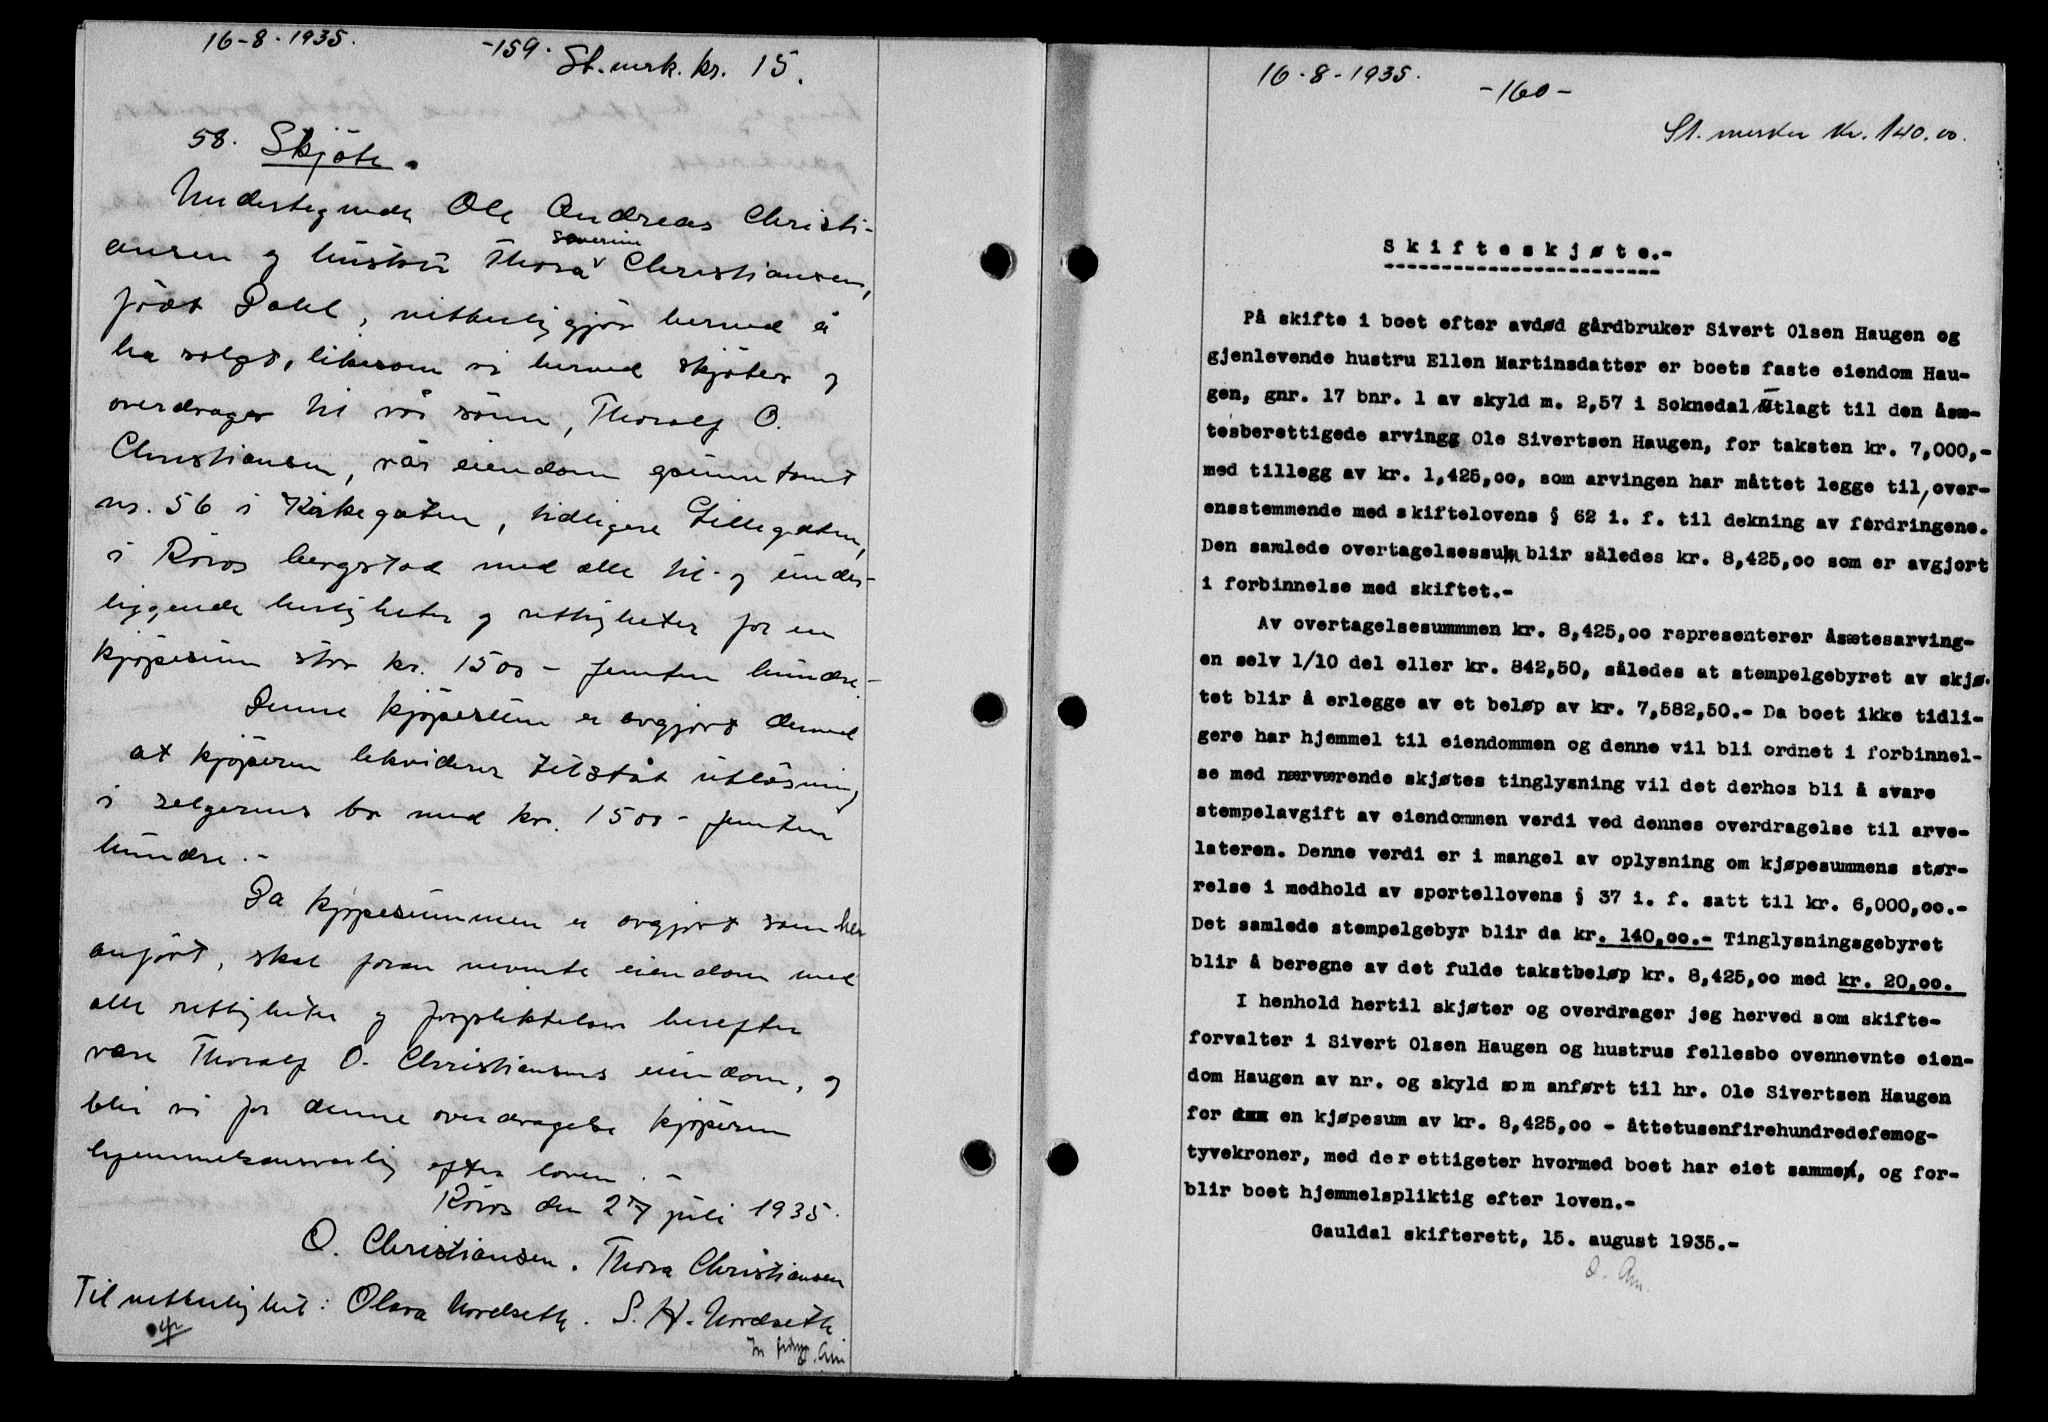 16-8-1935.
-159.
St.merk. kr. 15.
58. Skjöte.
Undertegnede Ole Andreas Christi-
severine
ansen og hustru Thora v Christiansen,
født Dahl, vitterliggjör herved å
ha solgt, likesom vi herved skjöter og
overdrager til vår sönn, Thoralf O.
Christiansen, vår eiendom grunntomt
nr. 56 i Kirkegaten, tidligere Lillegaten,
i Röros bergstad med alle til- og under-
liggende herligheter og rettigheter for en
kjöpesum stor kr. 1500 - femten hundre -
Denne kjöpesum er avgjort dermed
at kjöperen lekviderer tilstått utlösning
i selgernes bo med kr. 1500 - femten
hundre.-
Da kjöpesummen er avgjort som her
anfört, skal foran nevnte eiendom med
alle rettigheter og forpliktelser herefter
være Thoralf O. Christiansens eiendom, og
blir vi for denne overdragelse kjöperen
hjemmelsansvarlig efter loven.-
Röros den 27 juli 1935.
O. Christiansen. Thora Christiansen
Til vitterlighet: Olava Nordseth. S. H. Nordseth
16-8-1935.
-160-
St. merker kr. 140.00.
Skifteskjøte.-
På skifte i boet efter avdød gårdbruker Sivert Olsen Haugen og
gjenlevende hustru Ellen Martinsdatter er boets faste eiendom Hau-
gen, gnr. 17 bnr. 1 av skyld m. 2,57 i Soknedal utlagt til den åsæ-
tesberettigede arving Ole Sivertsen Haugen, for taksten kr. 7,000,-
med tillegg av kr. 1,425,00, som arvingen har måttet legge til, over-
ensstemmende med skiftelovens § 62 i. f. til dekning av fordringene.
Den samlede overtagelsessum blir således kr. 8,425,00 som er avgjort
i forbinnelse med skiftet.-
Av overtagelsesummmen kr. 8,425,00 representerer åsætesarving-
en selv 1/10 del eller kr. 842,50, således at stempelgebyret av skjø-
tet blir å erlegge av et beløp av kr. 7,582,50.- Da boet ikke tidli-
gere har hjemmel til eiendommen og denne vil bli ordnet i forbinnel-
se med nærværende skjøtes tinglysning vil det derhos bli å svare
stempelavgift av eiendommen verdi ved dennes overdragelse til arve-
lateren. Denne verdi er i mangel av oplysning om kjøpesummens stør-
relse i medhold av sportellovens § 37 i. f. satt til kr. 6,000,00.-
Det samlede stempelgebyr blir da kr. 140,00.- Tinglysningsgebyret
blir å beregne av det fulde takstbeløp kr. 8,425,00 med kr. 20,00.
I henhold hertil skjøter og overdrager jeg herved som skifte-
forvalter i Sivert Olsen Haugen og hustrus fellesbo ovennevnte eien-
dom Haugen av nr. og skyld som anført til hr. Ole Sivertsen Haugen
for en kjøpesum av kr. 8,425,00 - åttetusenfirehundredefemog-
tyvekroner, med de rettigeter hvormed boet har eiet sammen, og for-
blir boet hjemmelspliktig efter loven.-
Gauldal skifterett, 15. august 1935.-